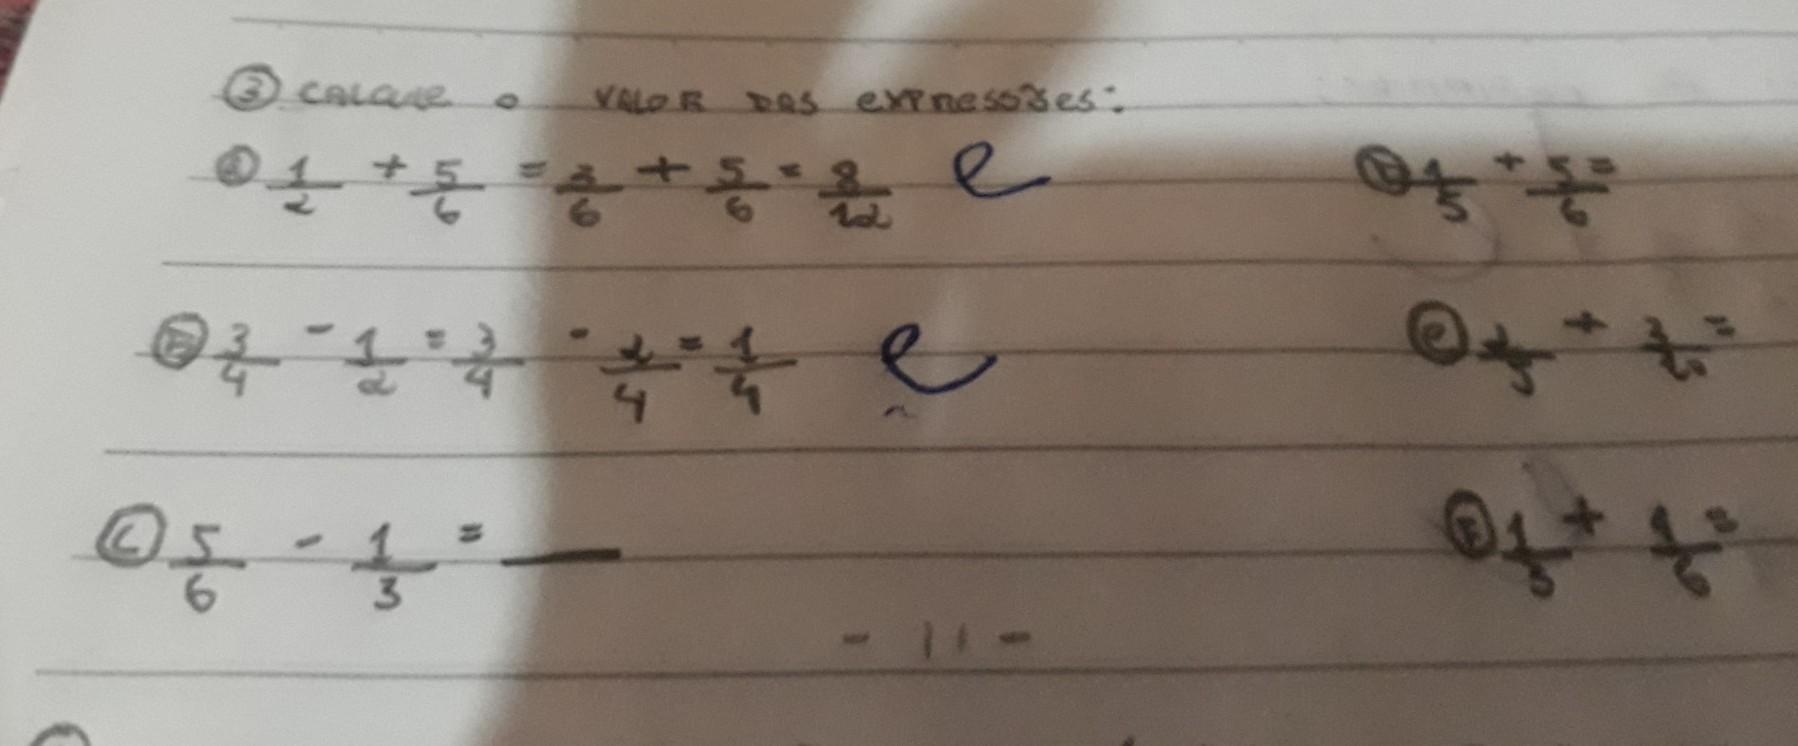 ③ CALCULE O VALOR DAS EXPRESSÕES:
Ⓐ 1/2 + 5/6 = 3/6 + 5/6 = 8/12 e
Ⓓ 1/5 + 5/6 =
Ⓑ 3/4 - 1/2 = 3/4 - 2/4 = 1/4 e
Ⓔ + =
Ⓒ 5/6 - 1/3 =
Ⓕ + 1/6 =
- 11 -